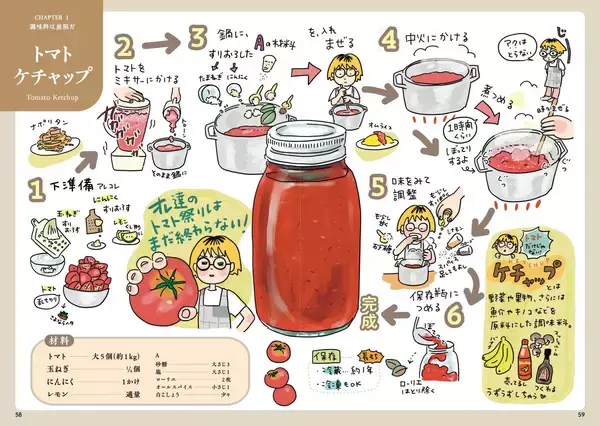 CHAPTER 1
調味料は無限だ
トマト
ケチャップ
Tomato Ketchup
ナポリタン
1
下準備
アレコレ
玉ねぎ
すりおろす
にんにく
すりおろす
レモン
くし形
トマト
2
トマトを
ミキサーにかける
ガガガガ
そのまま鍋に
3
鍋に、
すりおろした
たまねぎ
にんにく
Aの材料
を、入れ
まぜる
4
中火にかける
アクは
とらない
煮つめる
1時間
くらい
ぽってり
するよ
時々まぜる
オムライス
オレ達の
トマト祭りは
まだ終わらない!
5
味をみて
調整
砂糖
レモン
スパイス
足してもよし
6
保存瓶に
つめる
ローリエ
はとり除く
完成
保存
・冷蔵…約1年
・冷凍もOK
トマト
だけじゃ
ない!
KETCHUP
ケチャップ
とは
野菜や果物、さらには
魚介やキノコなどを
原料にした調味料。
売ってるし
つくれる
うずうずしちゃう
材料
トマト 大5個(約1kg)
玉ねぎ ½個
にんにく 1かけ
レモン 適量
A
砂糖 大さじ3
塩 大さじ1
ローリエ 2枚
オールスパイス 小さじ1
白こしょう 少々
58
59